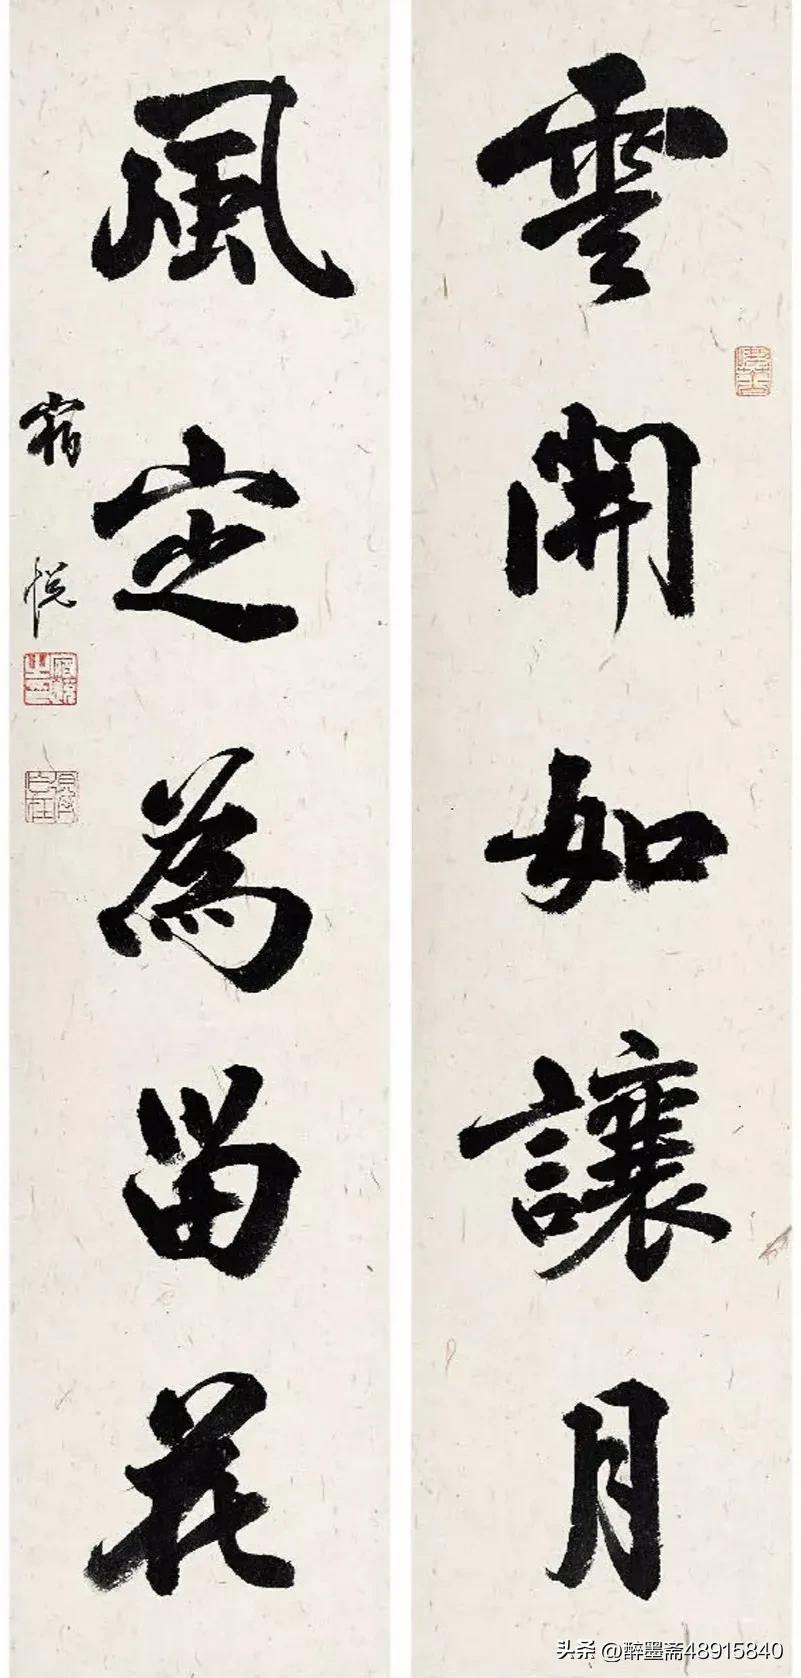 雲開如讓月
風定為留花
宿悦
头条 @醉墨斋48915840